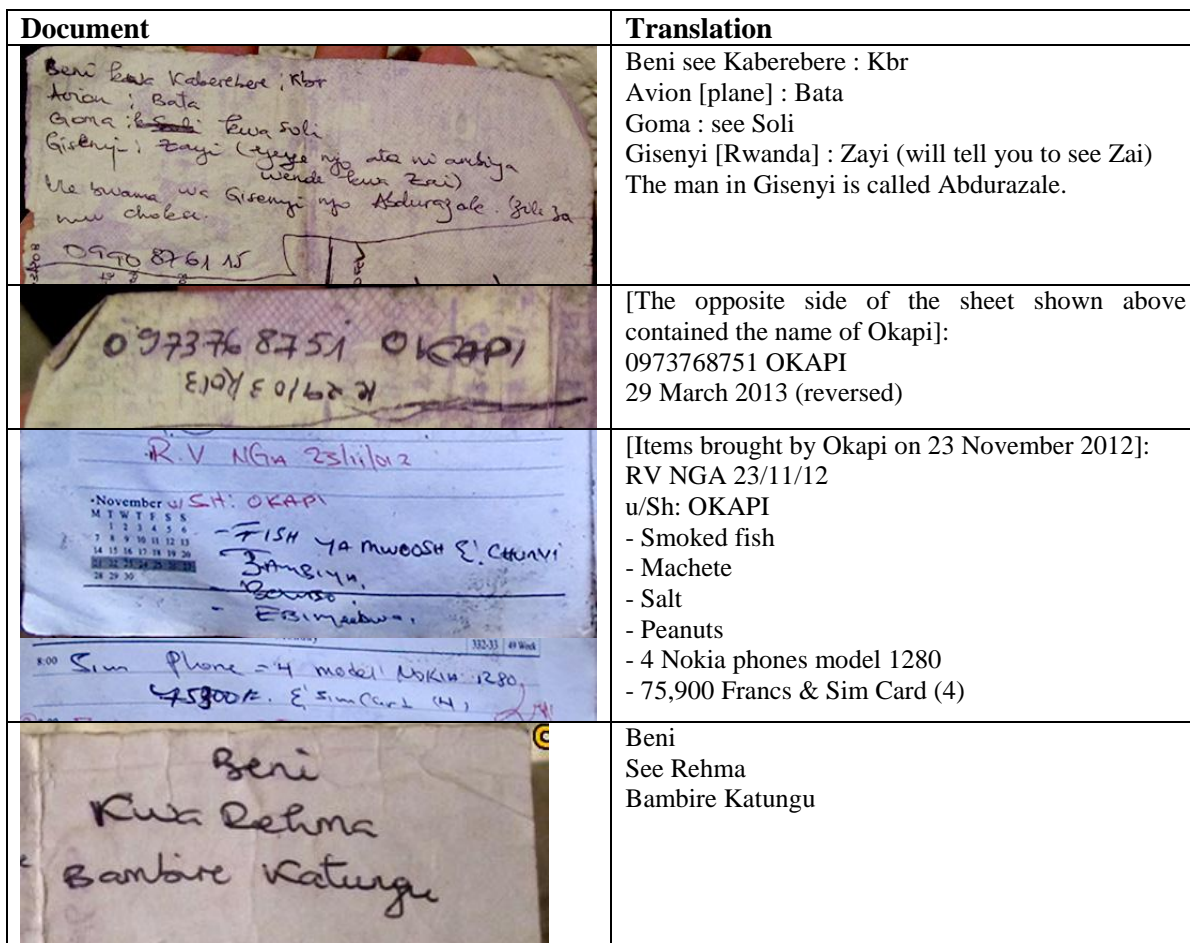 Document
Translation
Beni kwa Kaberebere : Kbr
Avion : Bata
Goma : kwa Soli
Gisenyi : Zayi (
wende kwa Zai)
bwama wa Gisenyi njo Abdurazale.
choka.
0990 8761 15
Beni see Kaberebere : Kbr
Avion [plane] : Bata
Goma : see Soli
Gisenyi [Rwanda] : Zayi (will tell you to see Zai)
The man in Gisenyi is called Abdurazale.
0973768751 OKAPI
[The opposite side of the sheet shown above
contained the name of Okapi]:
0973768751 OKAPI
29 March 2013 (reversed)
R.V NGA 23/11/012
November u/SH: OKAPI
M T W T F S S
1 2 3 4 5 6
7 8 9 10 11 12 13
14 15 16 17 18 19 20
21 22 23 24 25 26 27
28 29 30
- FISH YA MWOOSH & CHUNVI
332-33 49 Week
8:00 Sim Phone = 4 model NOKIA 1280
75900F. & Sim Card (4)
[Items brought by Okapi on 23 November 2012]:
RV NGA 23/11/12
u/Sh: OKAPI
- Smoked fish
- Machete
- Salt
- Peanuts
- 4 Nokia phones model 1280
- 75,900 Francs & Sim Card (4)
Beni
Kwa Rehma
Bambire Katungu
Beni
See Rehma
Bambire Katungu